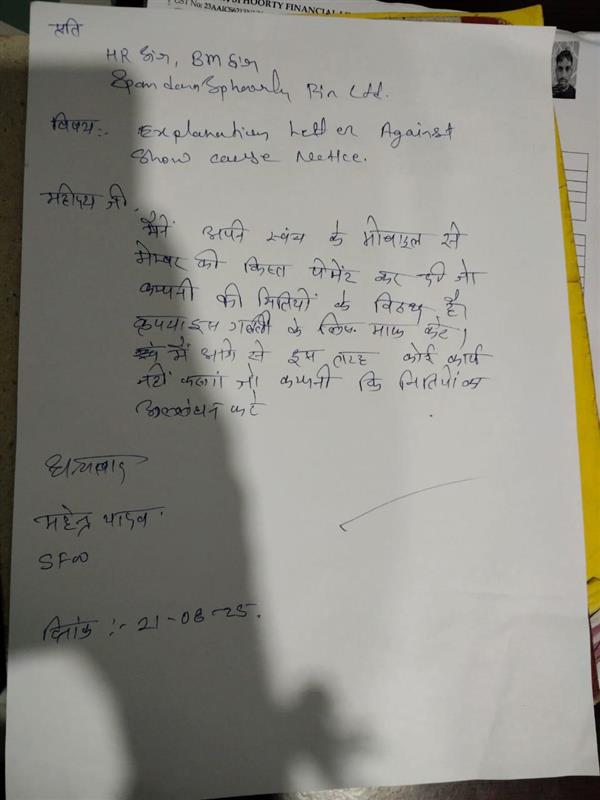 GST No: 23AAICS6
SPHOORTY FINANCIAL
प्रति
HR हेड, BM हेड
Spandana Sphoorty Fin Ltd.
विषय:- Explanation Letter Against
Show cause Notice.
महोदय जी,
मैंने अपने स्वंय के मोबाइल से
मेम्बर की किस्त पेमेंट कर दी जो
कम्पनी की नितियों के विरुध है।
कृपया इस गलती के लिए माफ करे।
में आगे से इस तरह कोई कार्य
नहीं करूगां जो कम्पनी कि नितियों का
उल्लंघन करे
धन्यवाद
महेन्द्र यादव
दिनांक :- 21-08-25.